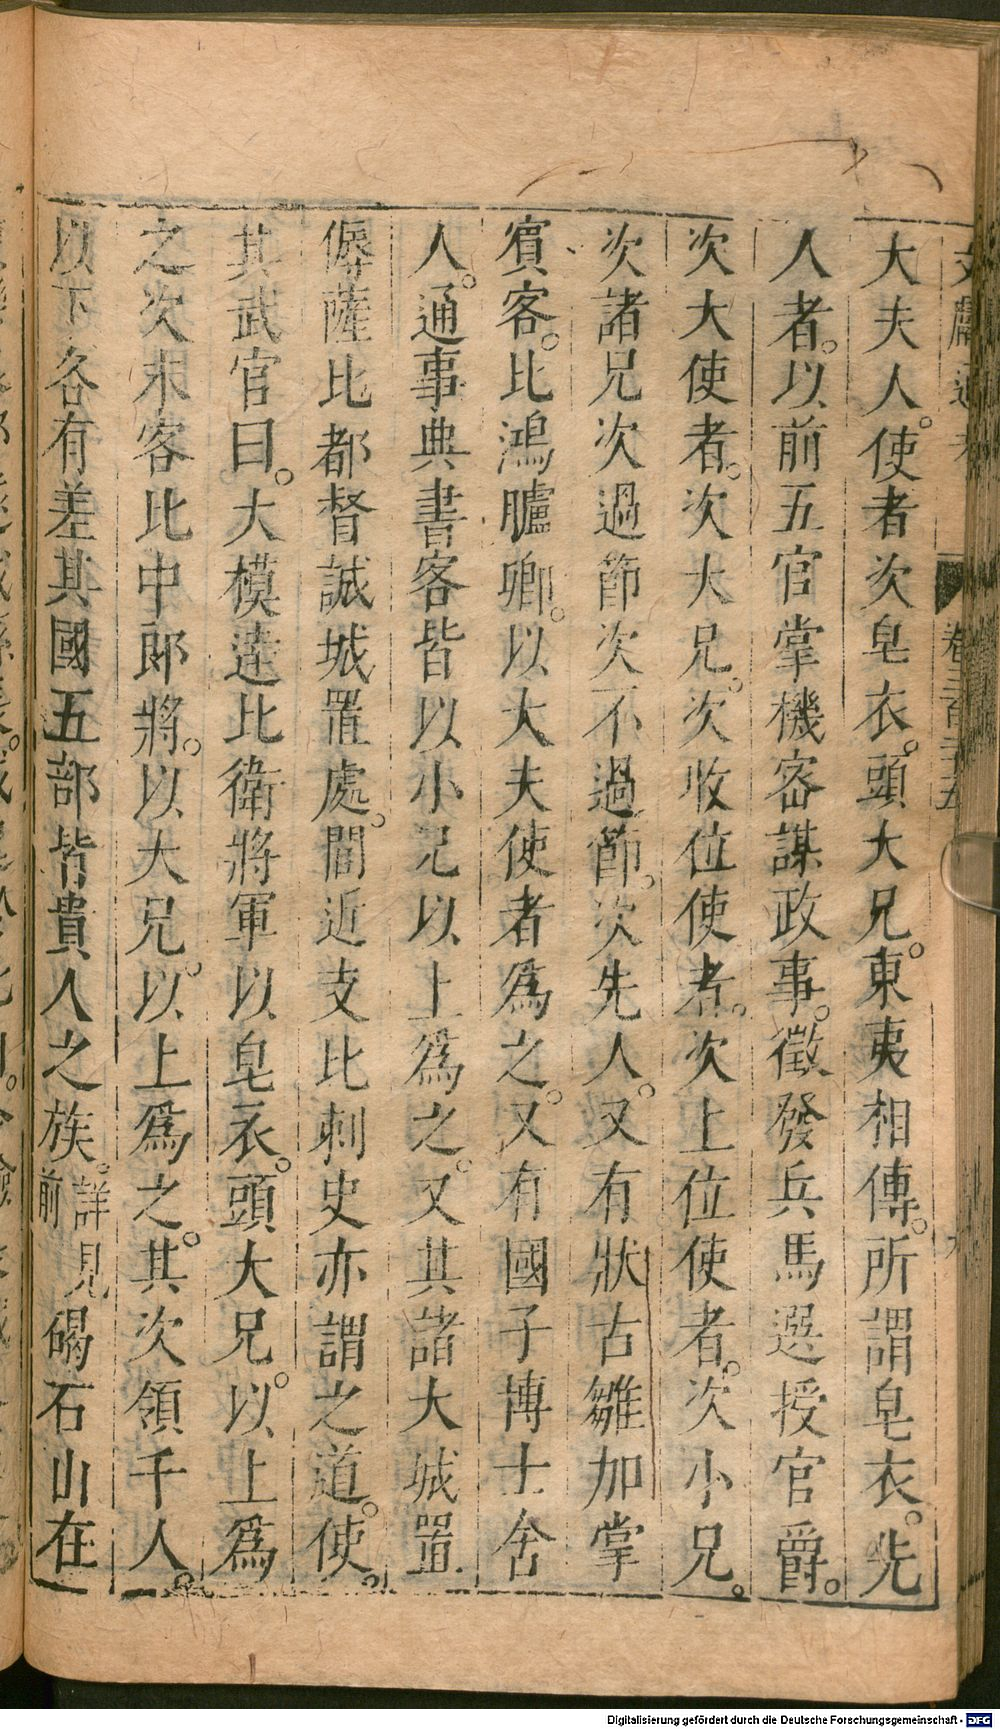 文獻通考 卷三百二十五 九
大夫人。使者次皂衣。頭大兄。東夷相傳。所謂皂衣。先
人者。以前五官掌機密謀政事。徵發兵馬選授官爵。
次大使者。次大兄。次收位使者。次上位使者。次小兄。
次諸兄次過節次不過節。次先人。又有狀古雛加掌
賓客。比鴻臚卿。以大夫使者為之。又有國子博士舍
人。通事典書客皆以小兄以上為之。又其諸大城置
傉薩比都督諸城置處。閭近支比刺史亦謂之道。使。
其武官曰。大模達比衛將軍以皂衣。頭大兄。以上為
之次末客比中郎將。以大兄。以上為之。其次領千人。
以下各有差其國五部皆貴人之族。詳見前碣石山在
Digitalisierung gefördert durch die Deutsche Forschungsgemeinschaft - DFG